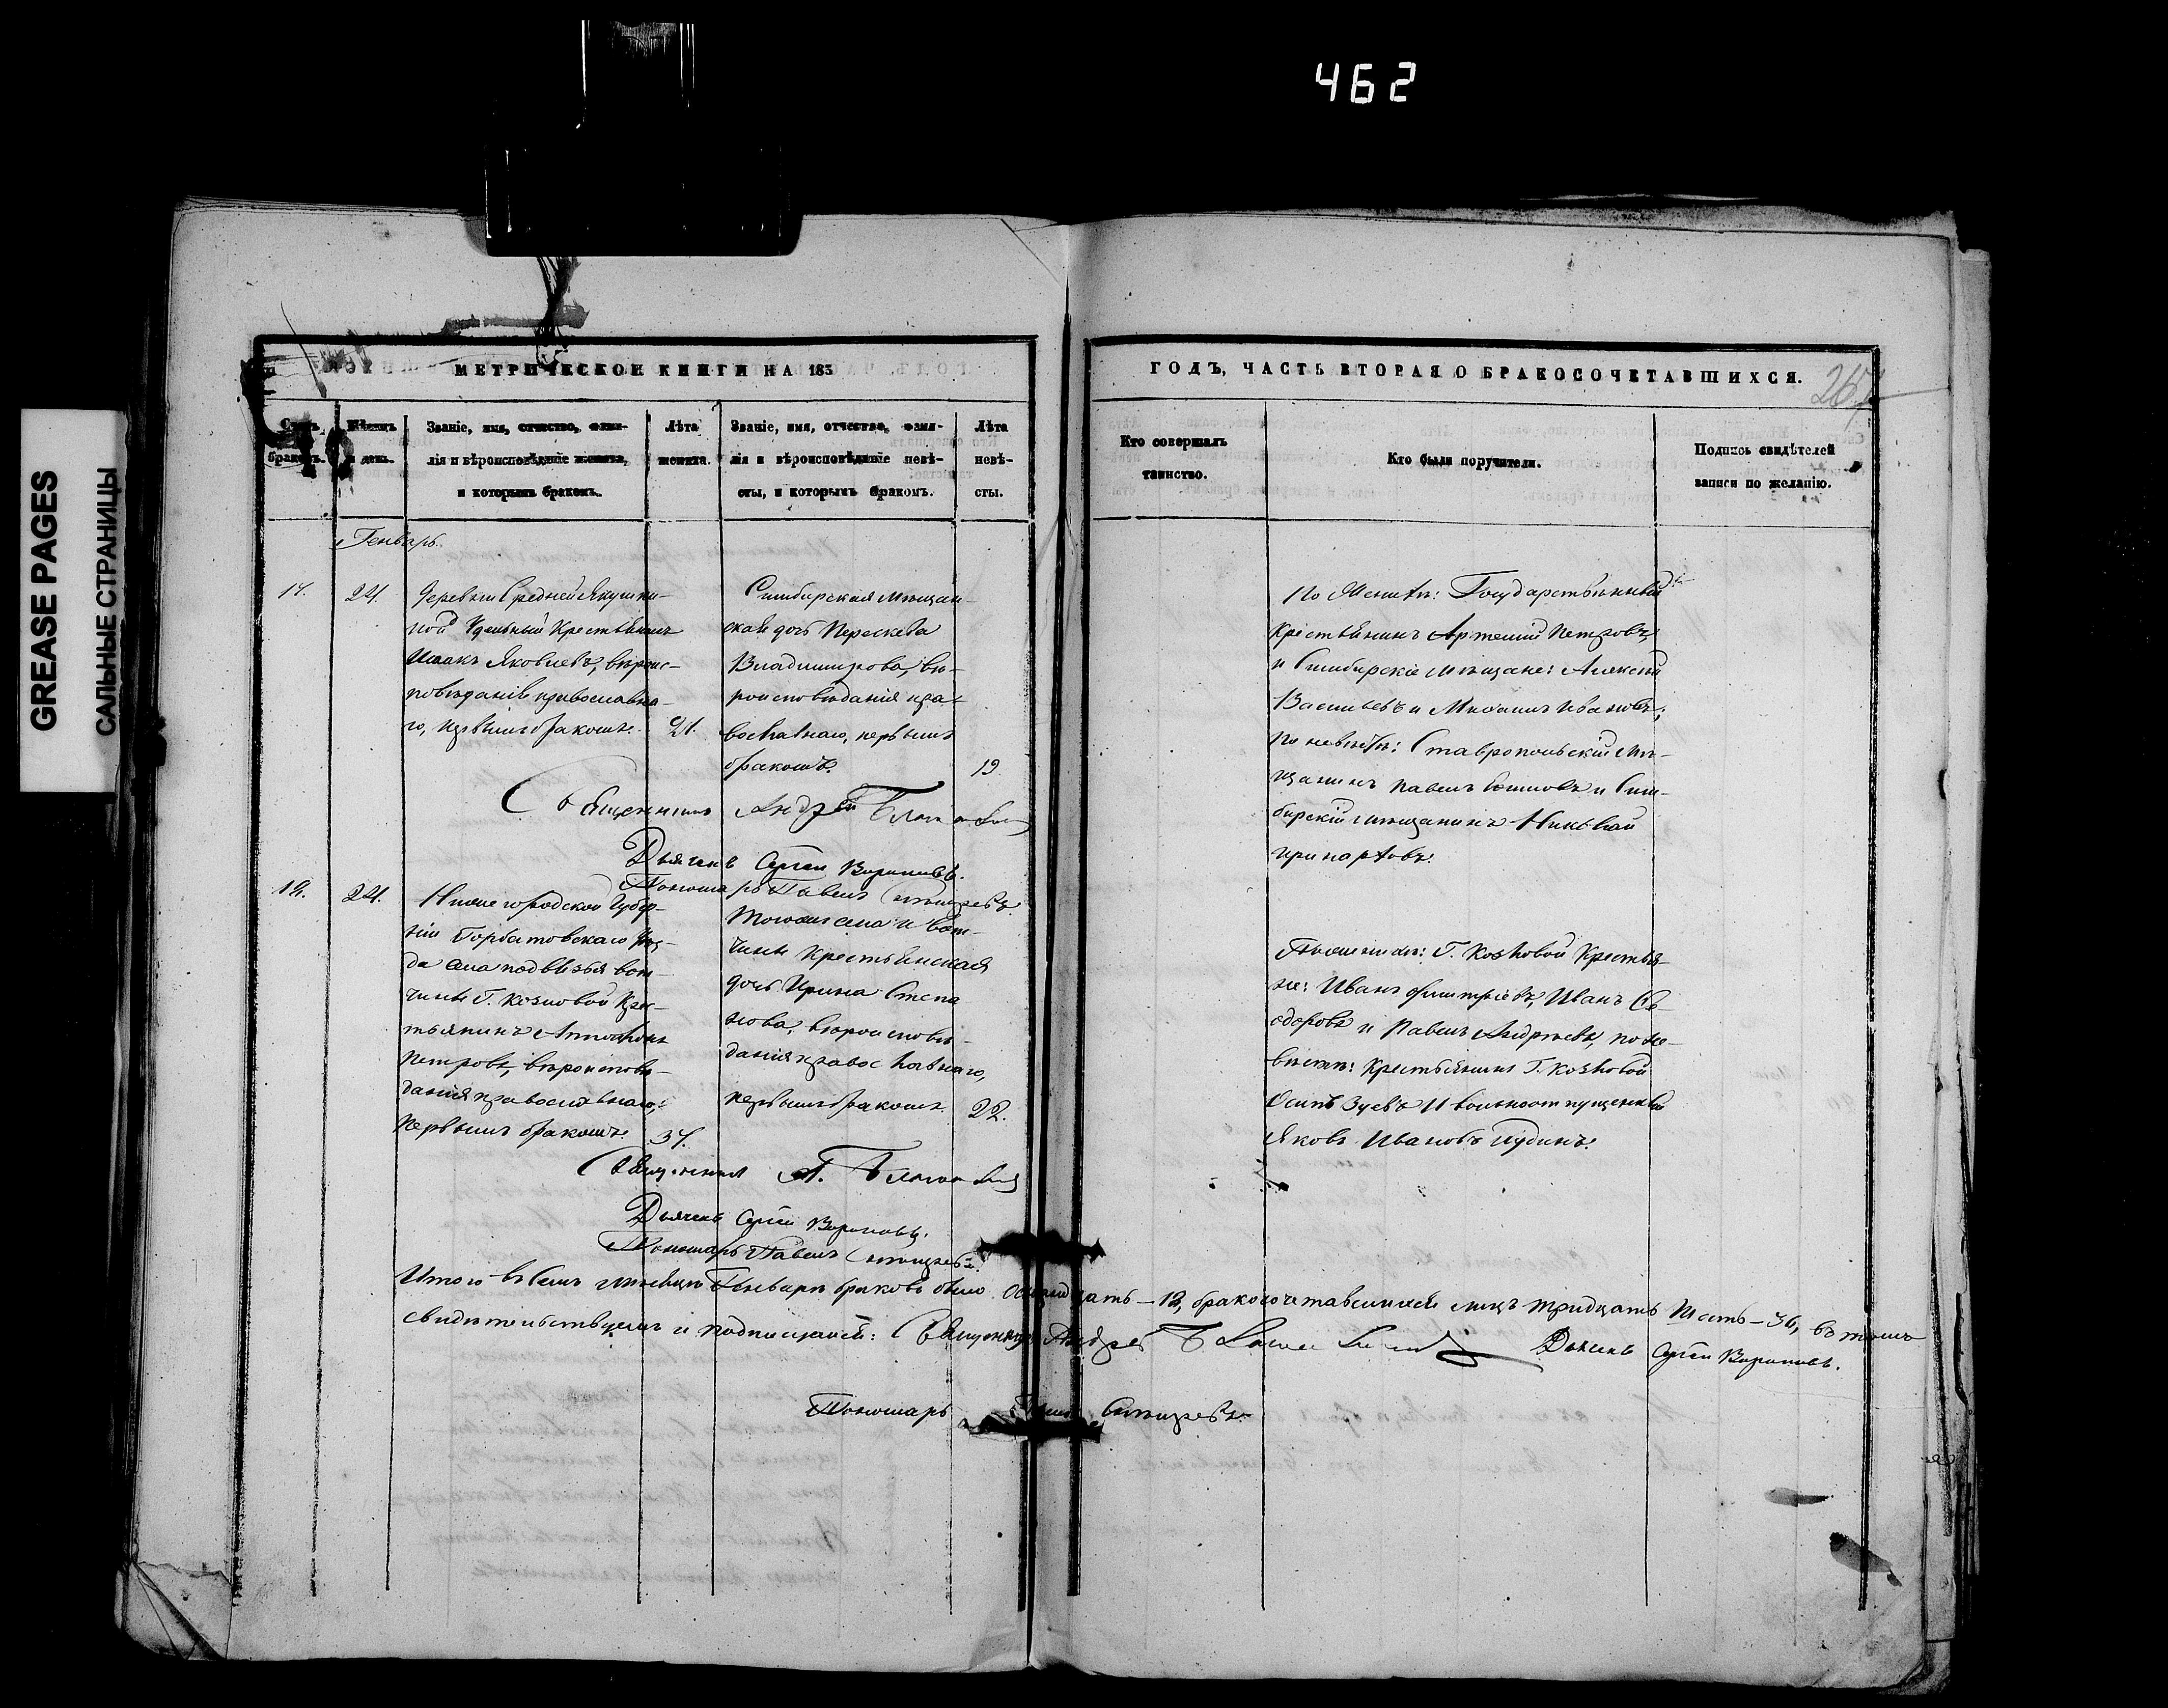 462
GREASE PAGES
САЛЬНЫЕ СТРАНИЦЫ
МЕТРИЧЕСКОЙ КНИГИ НА 185
ГОДЪ, ЧАСТЬ ВТОРАЯ О БРАКОСОЧЕТАВШИХСЯ.
Счетъ браковъ.
Мѣсяцъ и день.
Званіе, имя, отчество, фами-
лія и вѣроисповѣданіе жениха,
и которымъ бракомъ.
Лѣта
жениха.
Званіе, имя, отчество, фами-
лія и вѣроисповѣданіе невѣ-
сты, и которымъ бракомъ.
Лѣта
невѣ-
сты.
Кто совершалъ
таинство.
Кто были поручители.
Подпись свидѣтелей
записи по желанію.
Генварь.
17.
24.
Деревни Средней Якушки-
ной Удельный Крестьянинъ
Исаакъ Яковлевъ, вѣроис-
повѣданія православна-
го, первымъ бракомъ.
21.
Симбирская мѣщан-
ская дочь
Владимирова, вѣ-
роисповѣданія пра-
вославнаго, первымъ
бракомъ.
19.
По Женихѣ: Государственный
Крестьянинъ Артемій Петровъ,
и Симбирскіе мѣщане: Алексѣй
Васильевъ и Михаилъ Ивановъ;
по невѣстѣ: Ставропольскій мѣ-
щанинъ Павелъ и Сим-
бирскій мѣщанинъ Николай
Священникъ Андрей
Дьячекъ Сергѣй Вороновъ.
Пономарь Павелъ
18.
24.
Нижегородской Губер-
ніи Горбатовскаго Уѣз-
да села Подвязья вот-
чины Г. Козловой Крес-
тьянинъ
Петровъ, вѣроисповѣ-
данія православнаго,
первымъ бракомъ.
37.
Тогоже села и вот-
чины Крестьянская
дочь Ирина Степа
нова, вѣроисповѣ-
данія православнаго,
первымъ бракомъ.
22.
По женихѣ: Г. Козловой Крестья-
не: Иванъ Дмитріевъ, Иванъ Си-
доровъ и Павелъ Андреевъ, по не-
вѣстѣ: Крестьянинъ Г. Козловой
Осипъ Зуевъ и вольноотпущенный
Яковъ Ивановъ
Священникъ А.
Дьячекъ Сергѣй Вороновъ.
Пономарь Павелъ
Итого въ семъ мѣсяцѣ Генварѣ браковъ было осмнадцать – 18, бракосочетавшихся лицъ тридцать шесть – 36, въ томъ
свидѣтельствуемъ и подписуемся: Священникъ Андрей Дьячекъ Сергѣй Вороновъ.
Пономарь Павелъ